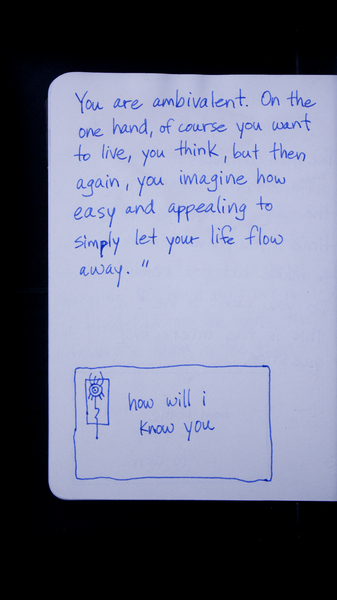 You are ambivalent. On the
one hand, of course you want
to live, you think, but then
again, you imagine how
easy and appealing to
simply let your life flow
away."
how will i
know you